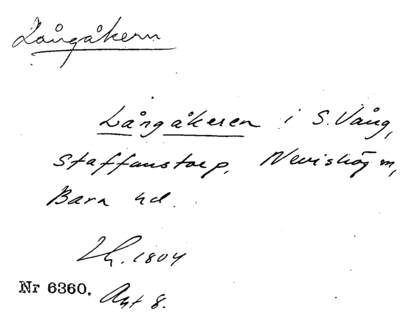 Långåkern
Långåkeren i S. Vång,
Staffanstorp, Nevishög sn,
Bara hd.
1804
Nr 6360. Akt 8.